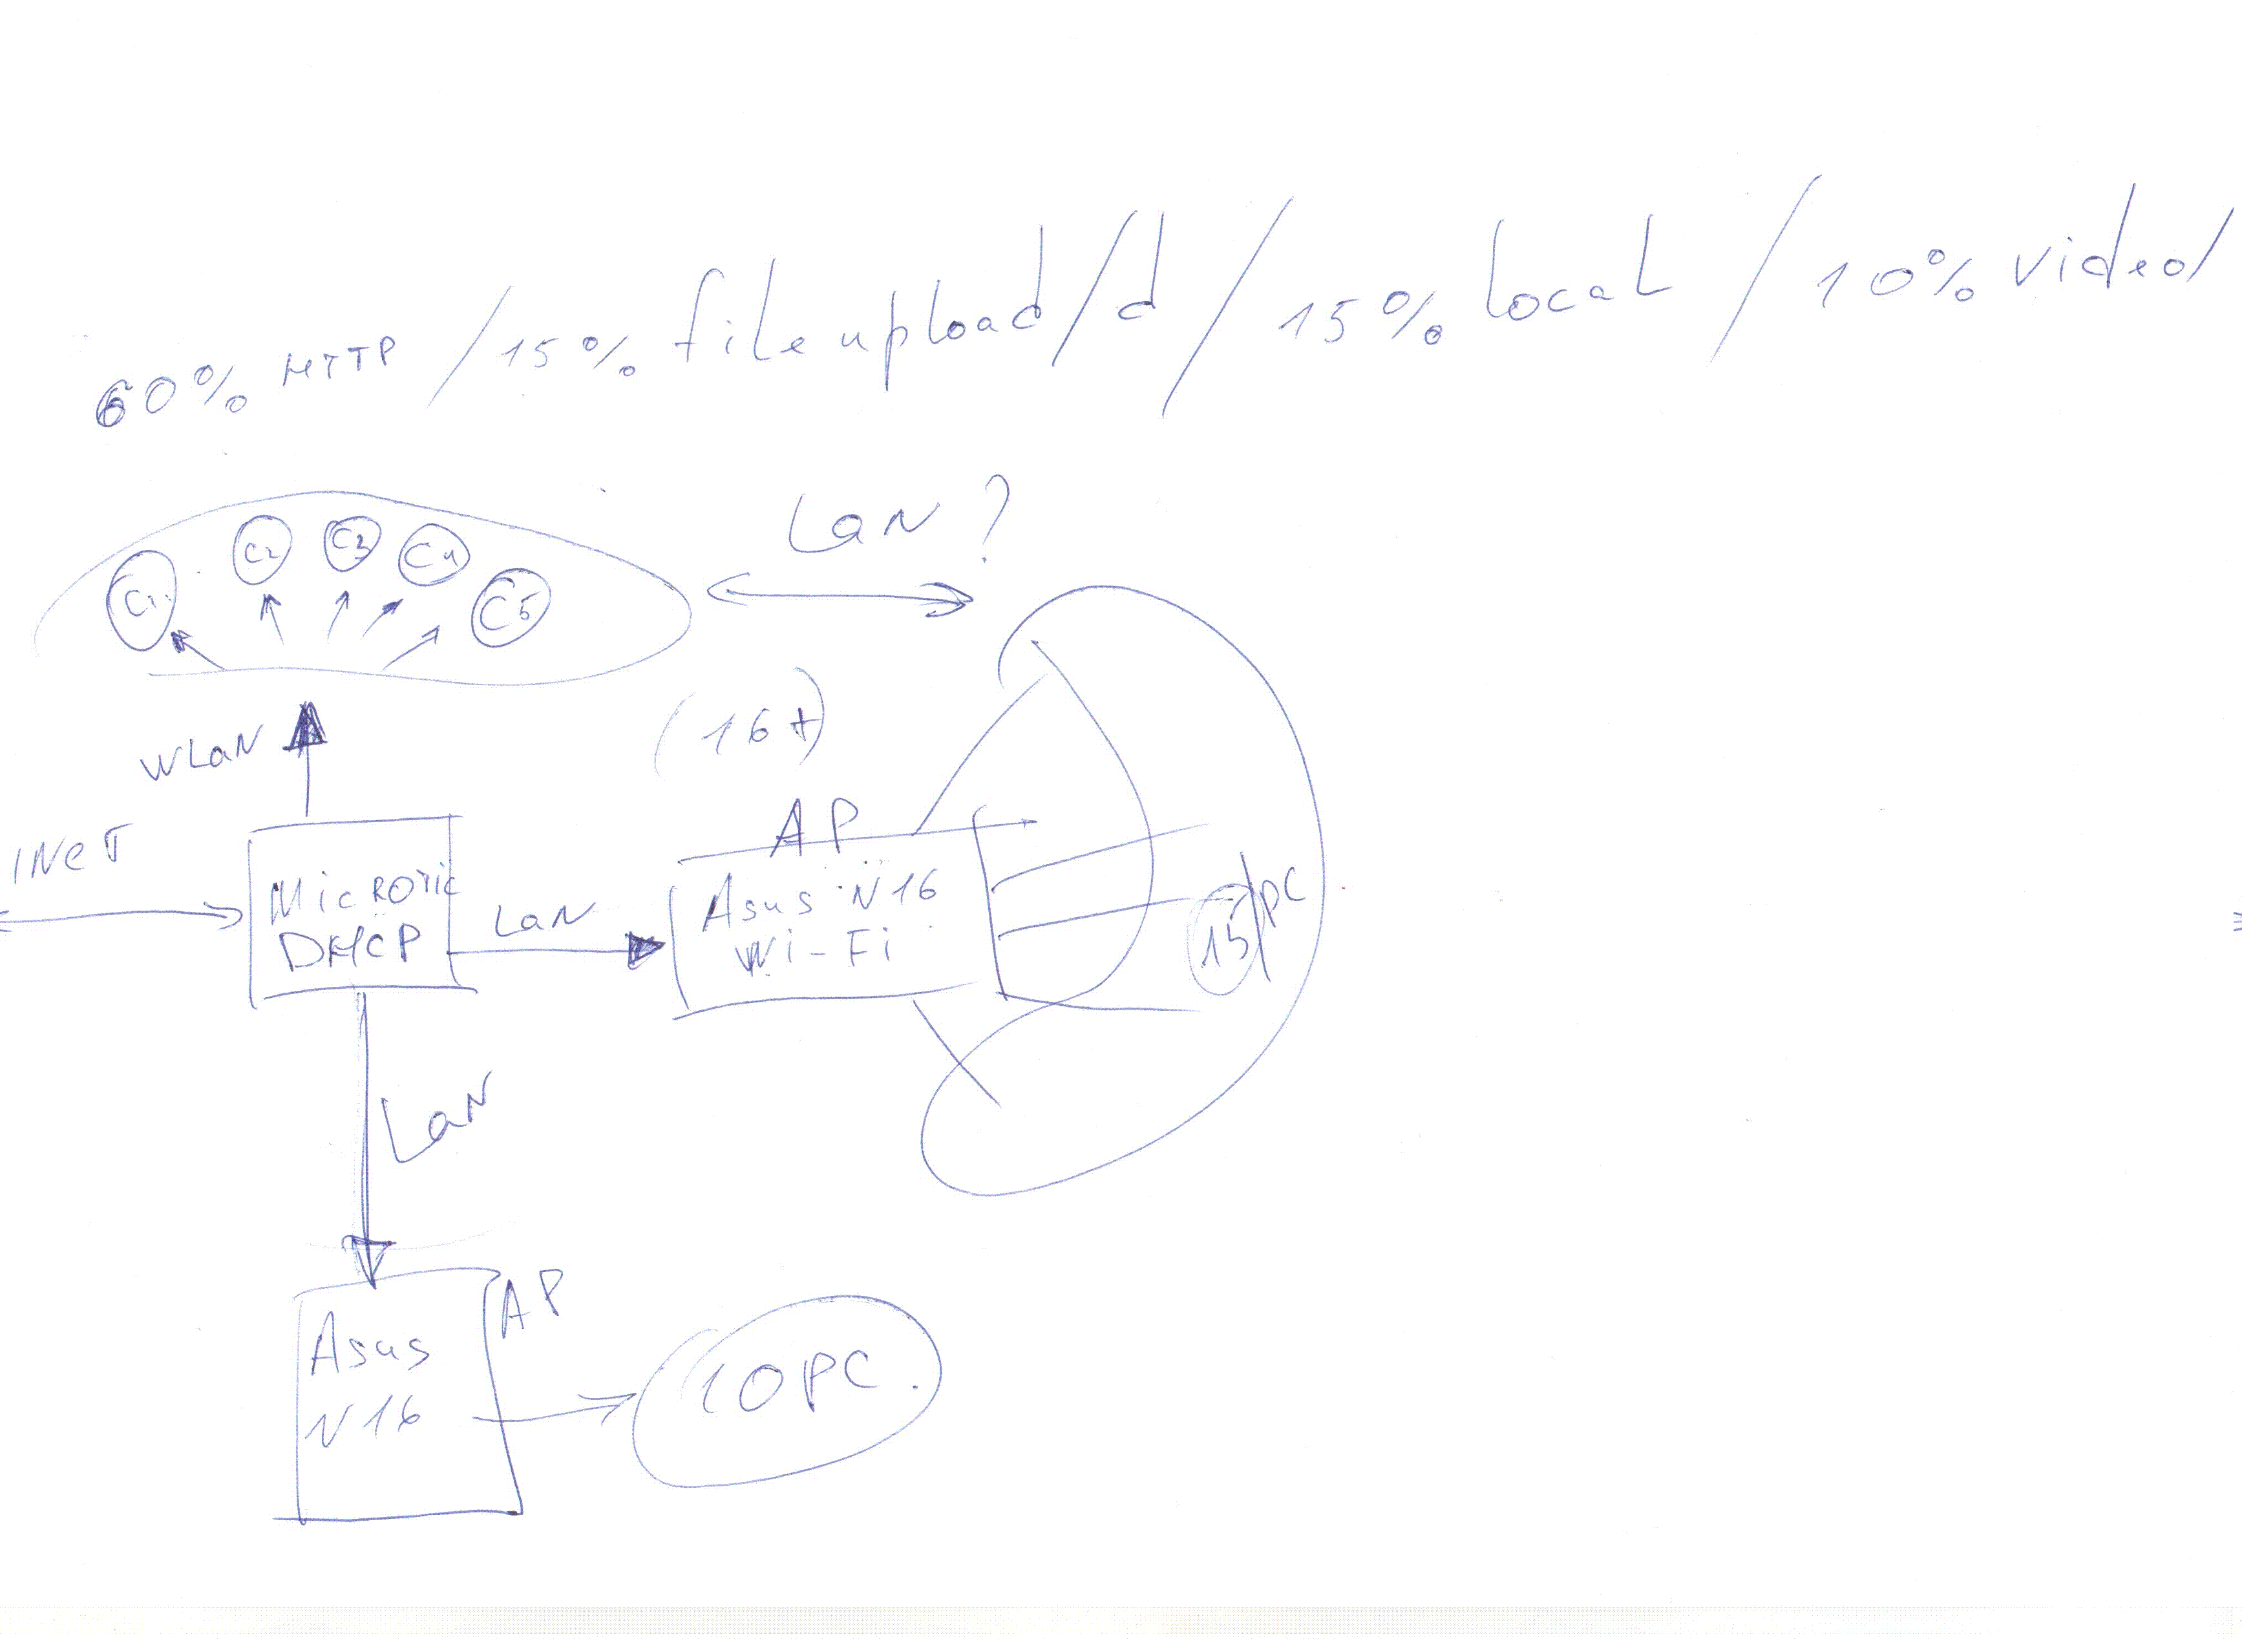 60% HTTP / 15% file upload/d / 15% local / 10% video/
LaN?
C1 C2 C3 C4 C5
(16+)
WLaN
AP
INeT
MicROTic
DHCP
LaN
Asus N16
Wi-Fi
15 PC
LaN
AP
Asus
N16
10PC.